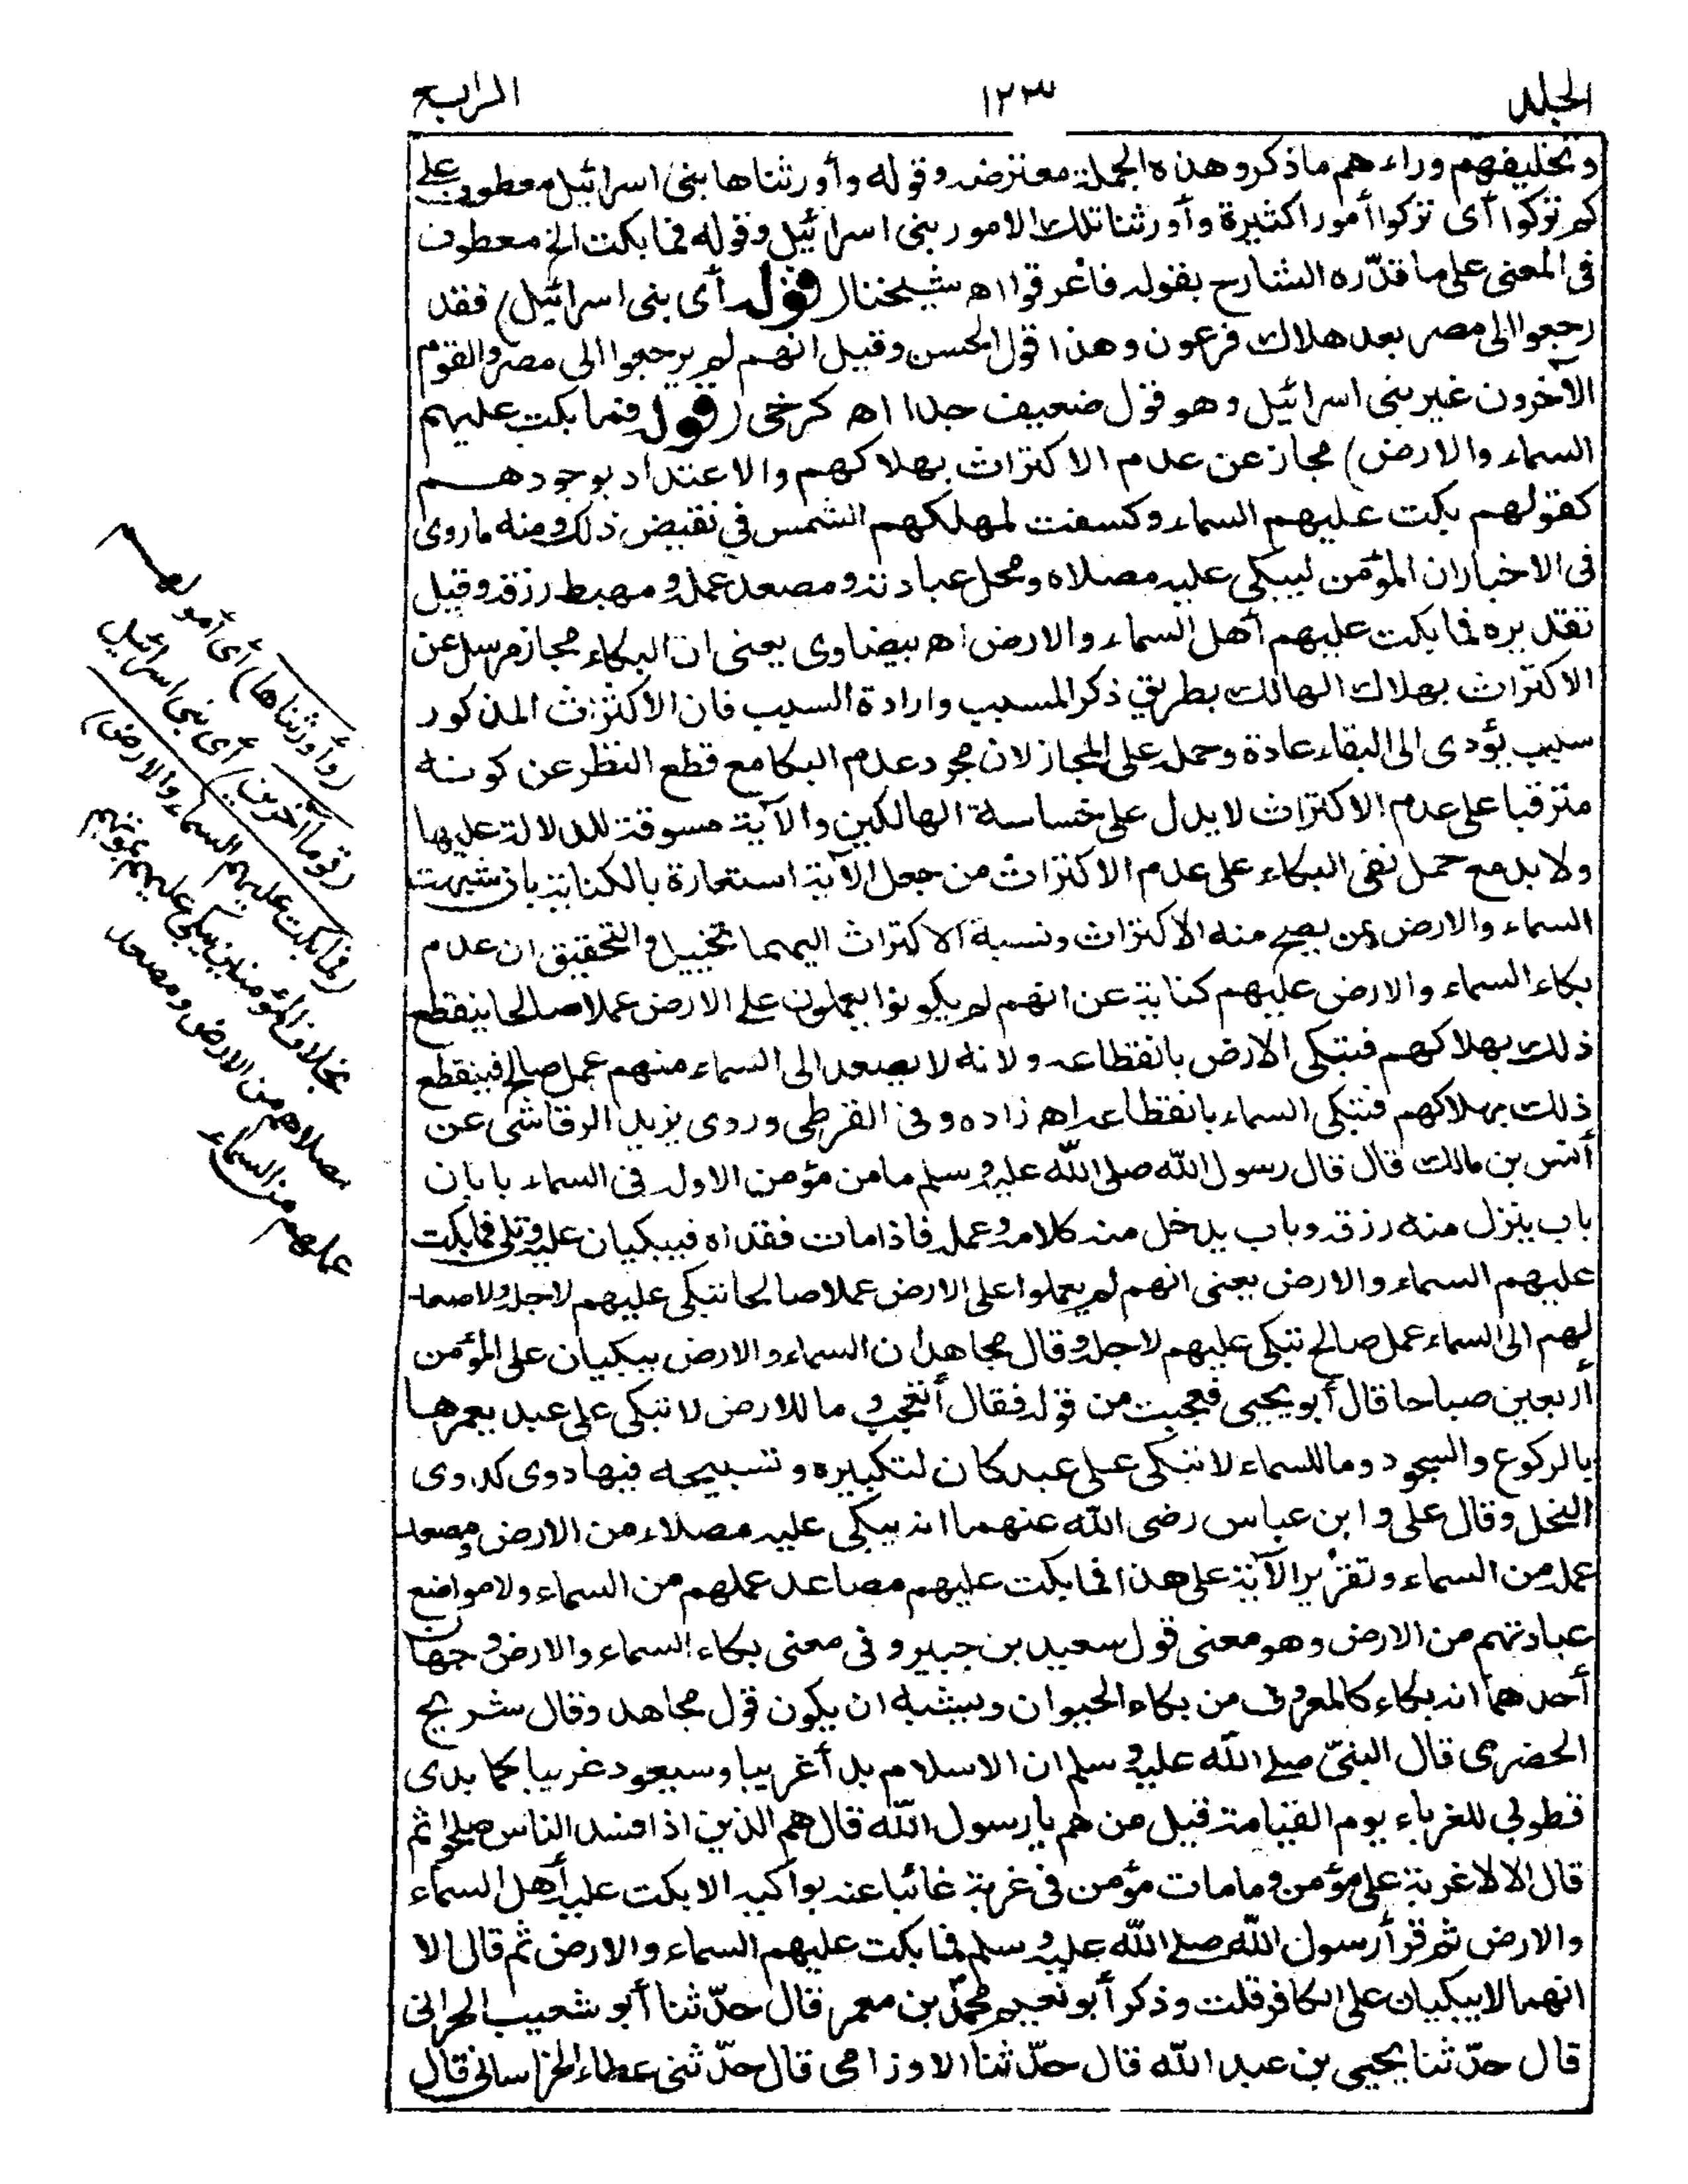 الجلد ١٢٣ الرابع
وتخليفهم وراءهم ماذكروهذه الجملة معترضة وقوله وأورثناها بنى اسرائيل معطوف على
كم تركوا أى تركوا أمورا كثيرة وأورثنا تلك الامور بنى اسرائيل وقوله فما بكت الخ معطوف
فى المعنى على ما قدّره الشارح بقوله فاغرقوا اه شيخنا (قوله أى بنى اسرائيل) فقد
رجعوا الى مصر بعد هلاك فرعون وهذا قول الحسن وقيل انهم لم يرجعوا الى مصر والقوم
الآخرون غير بنى اسرائيل وهو قول ضعيف جدا اه كرخى (قوله فما بكت عليهم
السماء والارض) مجاز عن عدم الاكتراث بهلاكهم والاعتداد بوجودهم
كقولهم بكت عليهم السماء وكسفت لمهلكهم الشمس فى نقيض ذلك ومنه ما روى
فى الاخبار ان المؤمن ليبكى عليه مصلاه ومحل عبادته ومصعد عمله ومهبط رزقه وقيل
تقديره فما بكت عليهم أهل السماء والارض اه بيضاوى يعنى ان البكاء مجاز مرسل عن
الاكتراث بهلاك الهالك بطريق ذكر المسبب وارادة السبب فان الاكتراث المذكور
سبب يؤدى الى البقاء عادة وحمله على المجاز لان مجرد عدم البكا مع قطع النظر عن كونه
مترقبا على عدم الاكتراث لا يدل على خساسة الهالكين والآية مسوقة للدلالة عليها
ولا بد مع حمل نفى البكاء على عدم الاكتراث من جعل الآية استعارة بالكناية بان شبهت
السماء والارض بمن يصح منه الاكتراث ونسبة الاكتراث اليهما تخييل والتحقيق ان عدم
بكاء السماء والارض عليهم كناية عن انهم لم يكونوا يعملون على الارض عملا صالحا ينقطع
ذلك بهلاكهم فتبكى الارض بانقطاعه ولانه لا يصعد الى السماء منهم عمل صالح فينقطع
ذلك بهلاكهم فتبكى السماء بانقطاعه اه زاده وفى القرطبى وروى يزيد الرقاشى عن
أنس بن مالك قال قال رسول الله صلى الله عليه وسلم ما من مؤمن الا وله فى السماء بابان
باب ينزل منه رزقه وباب يدخل منه كلامه وعمله فاذا مات فقداه فيبكيان عليه وتلى فما بكت
عليهم السماء والارض يعنى انهم لم يعملوا على الارض عملا صالحا تبكى عليهم لاجله ولا صعد
لهم الى السماء عمل صالح تبكى عليهم لاجله وقال مجاهد ان السماء والارض يبكيان على المؤمن
أربعين صباحا قال أبو يحيى فعجبت من قوله فقال أتعجب وما للارض لا تبكى على عبد يعمرها
بالركوع والسجود وما للسماء لا تبكى على عبد كان لتكبيره وتسبيحه فيها دوى كدوى
النحل وقال على وابن عباس رضى الله عنهما انه يبكى عليه مصلاه من الارض ومصعد
عمله من السماء وتقرير الآية على هذا فما بكت عليهم مصاعد عملهم من السماء ولا مواضع
عبادتهم من الارض وهو معنى قول سعيد بن جبير وفى معنى بكاء السماء والارض وجهان
أحدهما انه بكاء كالمعروف من بكاء الحيوان ويشبه ان يكون قول مجاهد وقال شريح
الحضرمى قال النبىّ صلى الله عليه وسلم ان الاسلام بدأ غريبا وسيعود غريبا كما بدى
فطوبى للغرباء يوم القيامة قيل من هم يا رسول الله قال هم الذين اذا فسد الناس صلحوا ثم
قال الا لا غربة على مؤمن وما مات مؤمن فى غربة غائبا عنه بواكيه الا بكت عليه أهل السماء
والارض ثم قرأ رسول الله صلى الله عليه وسلم فما بكت عليهم السماء والارض ثم قال الا
انهما لا يبكيان على الكافر قلت وذكر أبو نعيم محمد بن معمر قال حدّثنا أبو شعيب الحرانى
قال حدّثنا يحيى بن عبد الله قال حدّثنا الاوزاعى قال حدّثنى عطاء الخراسانى قال
(وأورثناها) أى أموالهم
(قوما آخرين) أى بنى اسرائيل
(فما بكت عليهم السماء والارض)
بخلاف المؤمنين يبكى عليهم بموتهم
مصلاهم من الارض ومصعد
عملهم من السماء